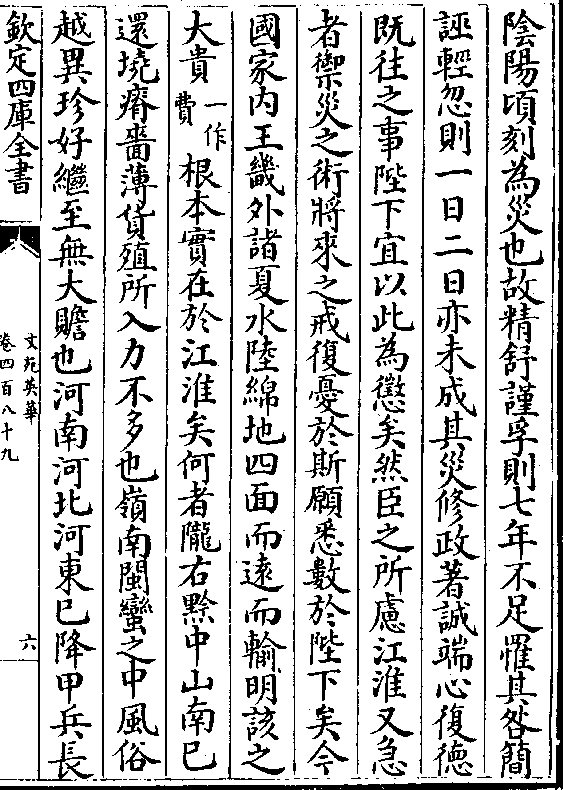 陰陽頃刻為災也故精舒謹孚則七年不足罹其咎簡
誣輕忽則一日二日亦未成其災修政著誠端心復德
既往之事陛下宜以此為懲矣然臣之所慮江淮又急
者禦災之術將來之戒復憂於斯願悉數於陛下矣今
國家内王畿外諸夏水陸綿地四面而遠而輸明該之
大貴一作費根本實在於江淮矣何者隴右黔中山南已
還墝瘠嗇薄貨殖所入力不多也嶺南閩蠻之中風俗
越異珍好繼至無大贍也河南河北河東已降甲兵長
欽定四庫全書
文苑英華
卷四百八十九
六